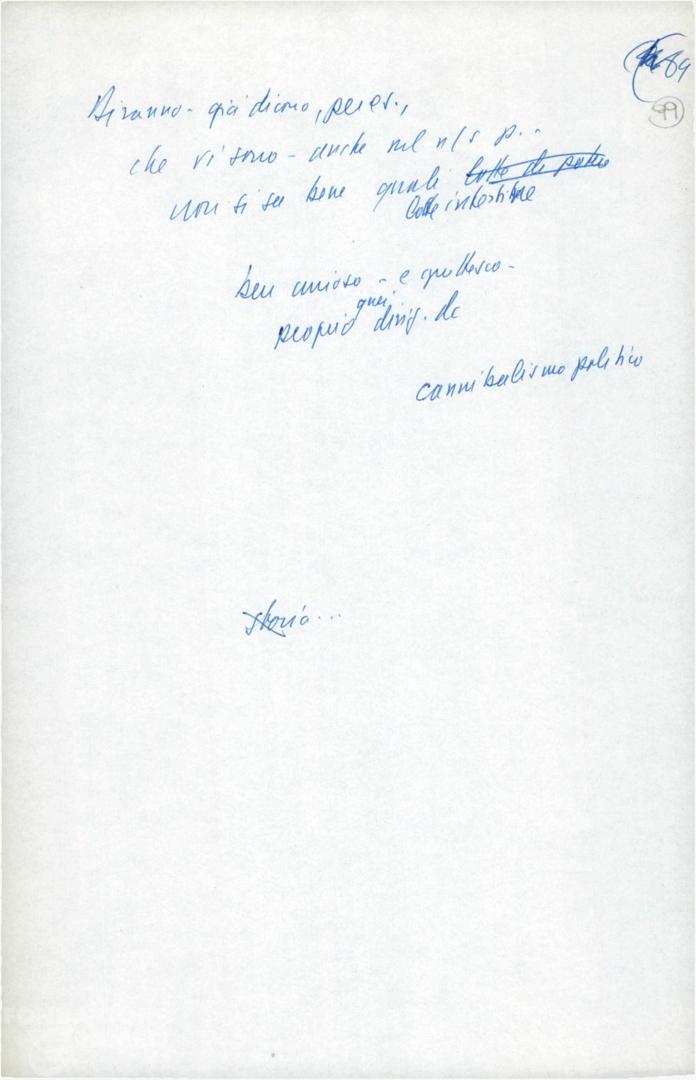 84
99
Diranno - già dicono, per es.,
che vi sono - anche nel n/s p. -
non si sa bene quali lotte di potere
lotte intestine
ben curioso - e grottesco -
quei
proprio dirig. dc
cannibalismo politico
storia...